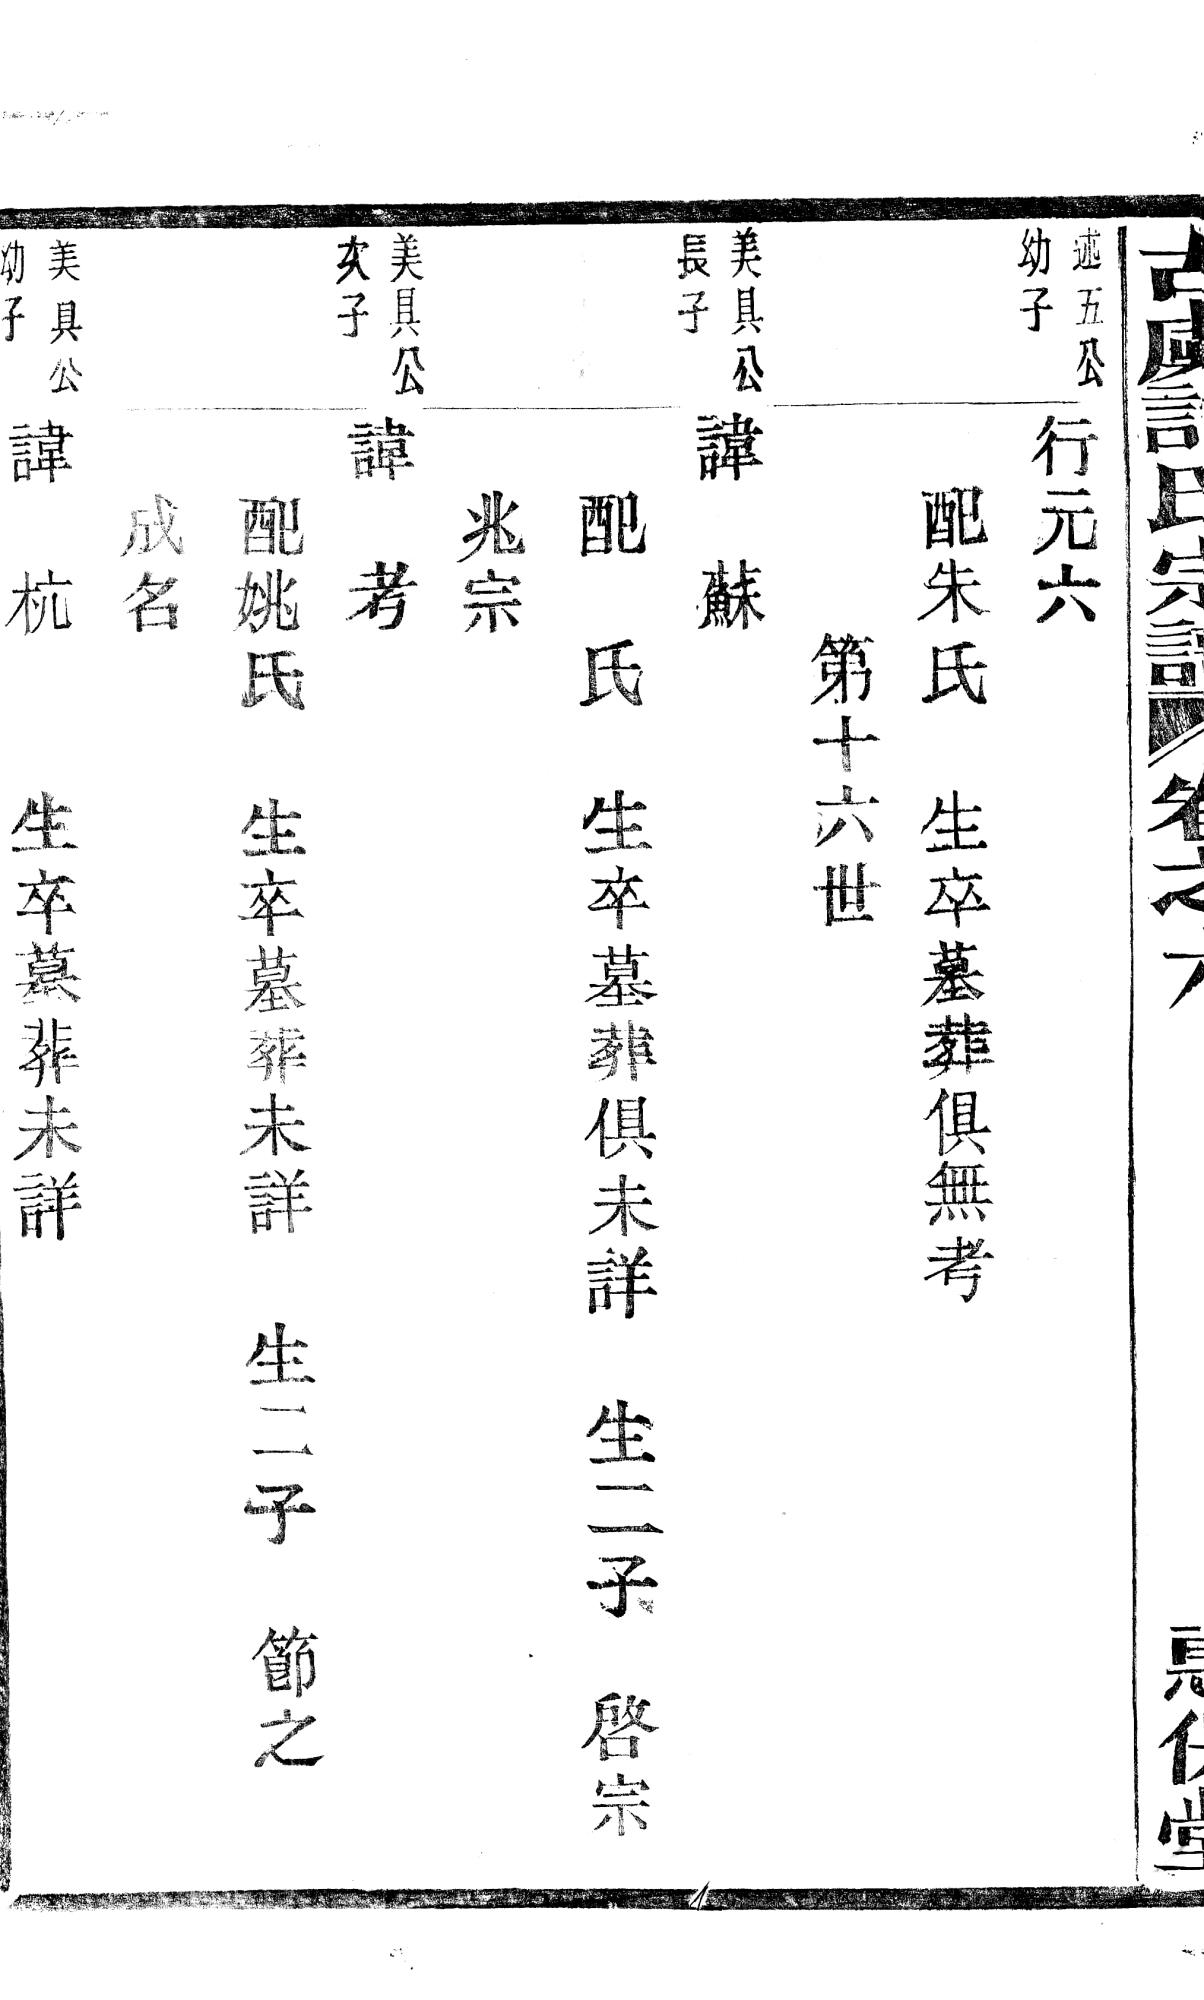 許氏宗譜 卷之六
堂
述五公
幼子
行元六
配朱氏 生卒墓葬俱無考
第十六世
美具公
長子
諱 蘇
配 氏 生卒墓葬俱未詳 生二子 啓宗
兆宗
美具公
次子
諱 考
配姚氏 生卒墓葬未詳 生二子 節之
成名
美具公
幼子
諱 杭 生卒墓葬未詳